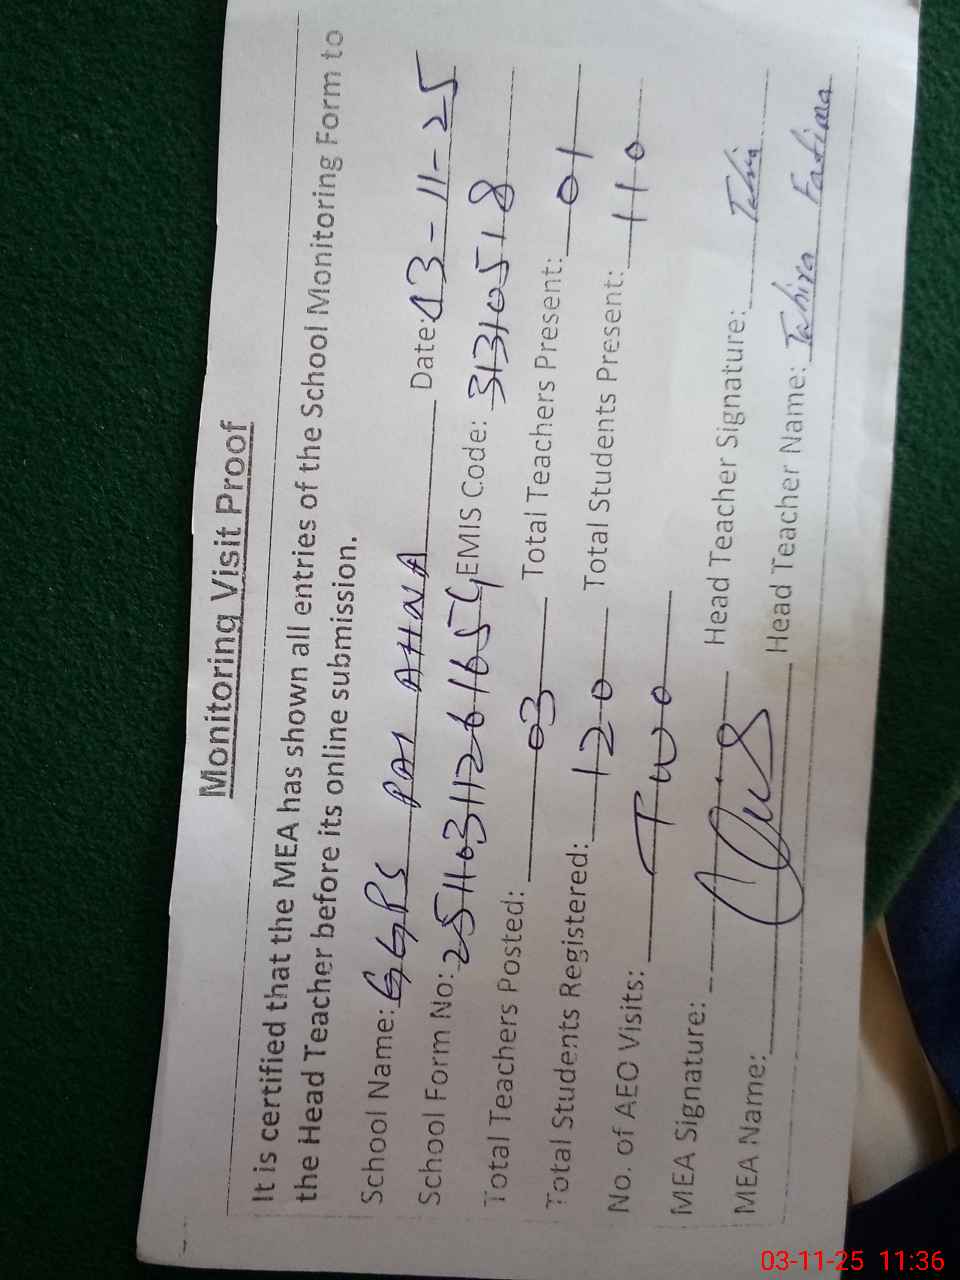 Monitoring Visit Proof
It is certified that the MEA has shown all entries of the School Monitoring Form to
the Head Teacher before its online submission.
School Name: GGPS PAI AHNA Date: 03-11-25
School Form No: 2511031126161654 EMIS Code: 31310518
Total Teachers Posted: 03 Total Teachers Present: 01
Total Students Registered: 120 Total Students Present: 110
No. of AEO Visits: Two
MEA Signature: Head Teacher Signature: Tahira
MEA Name: Head Teacher Name: Tahira Fatima
03-11-25 11:36